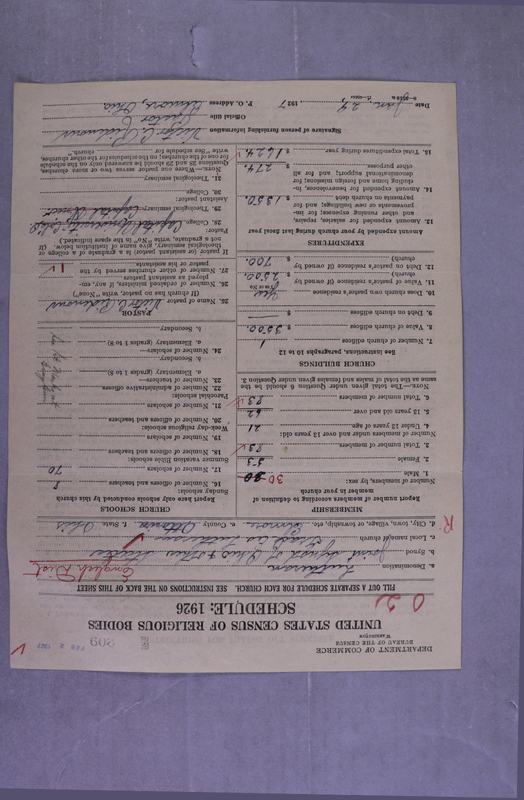 DEPARTMENT OF COMMERCE
BUREAU OF THE CENSUS
WASHINGTON
FEB 2 1927
309
UNITED STATES CENSUS OF RELIGIOUS BODIES
SCHEDULE: 1926
0 2
FILL OUT A SEPARATE SCHEDULE FOR EACH CHURCH. SEE INSTRUCTIONS ON THE BACK OF THIS SHEET
a. Denomination Lutheran English Dist
b. Synod Joint Synod of Ohio & Other States
c. Local name of church Lutheran
d. City, town, village, or township, etc. e. County Ottawa f. State Ohio
R
MEMBERSHIP
Report number of members according to definition of member in your church
Number of members, by sex:
1. Male 30
2. Female 53
3. Total number of members 83
Number of members under and over 13 years old:
4. Under 13 years of age 21
5. 13 years old and over 62
6. Total number of members 83
NOTE.—The total given under Question 6 should be the same as the total of males and females given under Question 3.
CHURCH BUILDINGS
See instructions, paragraphs 10 to 12
7. Number of church edifices 1
8. Value of church edifices $ 3500
9. Debt on church edifices $
10. Does church own pastor's residence Yes
(Yes or No)
11. Value of pastor's residence (if owned by church) $ 2500
12. Debt on pastor's residence (if owned by church) $ 700
EXPENDITURES
Amount expended by your church during last fiscal year
13. Amount expended for salaries, repairs, and other running expenses; for improvements or new buildings; and for payments on church debt $ 1350
14. Amount expended for benevolences, including home and foreign missions; for denominational support; and for all other purposes $ 274
15. Total expenditures during year $ 1624
CHURCH SCHOOLS
Report here only schools conducted by this church
Sunday schools:
16. Number of officers and teachers 8
17. Number of scholars 70
Summer vacation Bible schools:
18. Number of officers and teachers
19. Number of scholars
Week-day religious schools:
20. Number of officers and teachers
21. Number of scholars
Parochial schools:
22. Number of administrative officers
23. Number of teachers—
a. Elementary (grades 1 to 8)
b. Secondary
24. Number of scholars—
a. Elementary (grades 1 to 8)
b. Secondary
PASTOR
25. Name of pastor
(If church has no pastor, write "None")
26. Number of ordained ministers, if any, employed as assistant pastors
27. Number of other churches served by the pastor or his assistants 1
If pastor (or assistant pastor) is a graduate of a college or theological seminary, give name of institution below. (If not a graduate, write "No" in the space indicated.)
Pastor:
28. College Capital University, Ohio
29. Theological seminary Capital
Assistant pastor:
30. College
31. Theological seminary
NOTE.—Where one pastor serves two or more churches, Questions 25 and 28 should be answered only on the schedule for one of the churches; on the schedule for the other churches, write "See schedule for church."
Signature of person furnishing information
Official title Pastor
Date Jan. 24, 1927 P. O. Address Elmore, Ohio